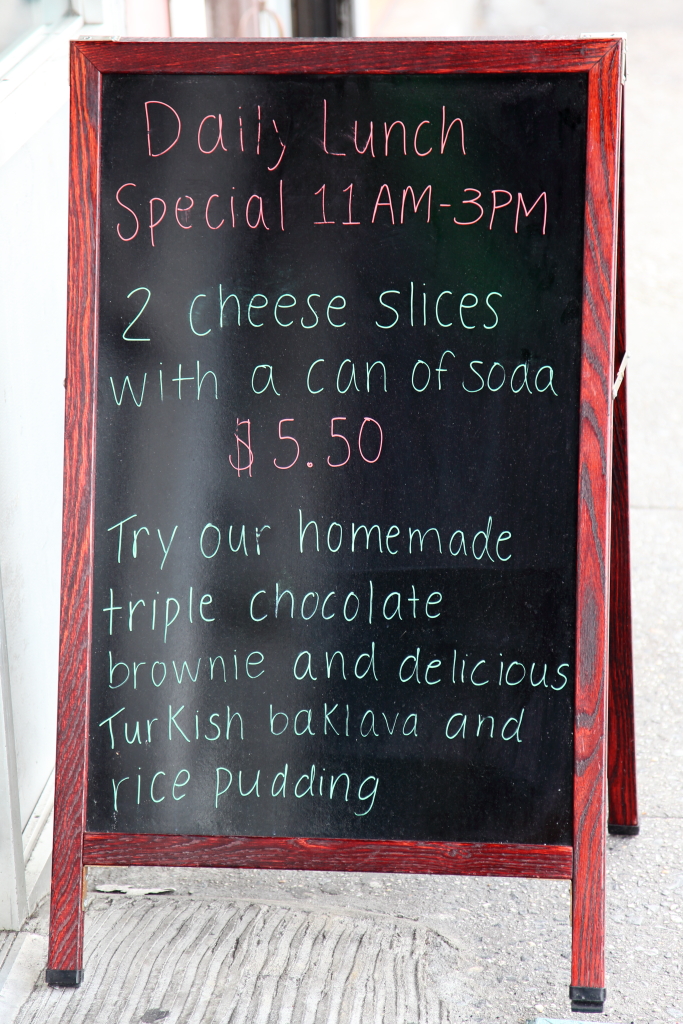 Daily Lunch
Special 11AM-3PM
2 cheese slices
with a can of soda
$5.50
Try our homemade
triple chocolate
brownie and delicious
Turkish baklava and
rice pudding